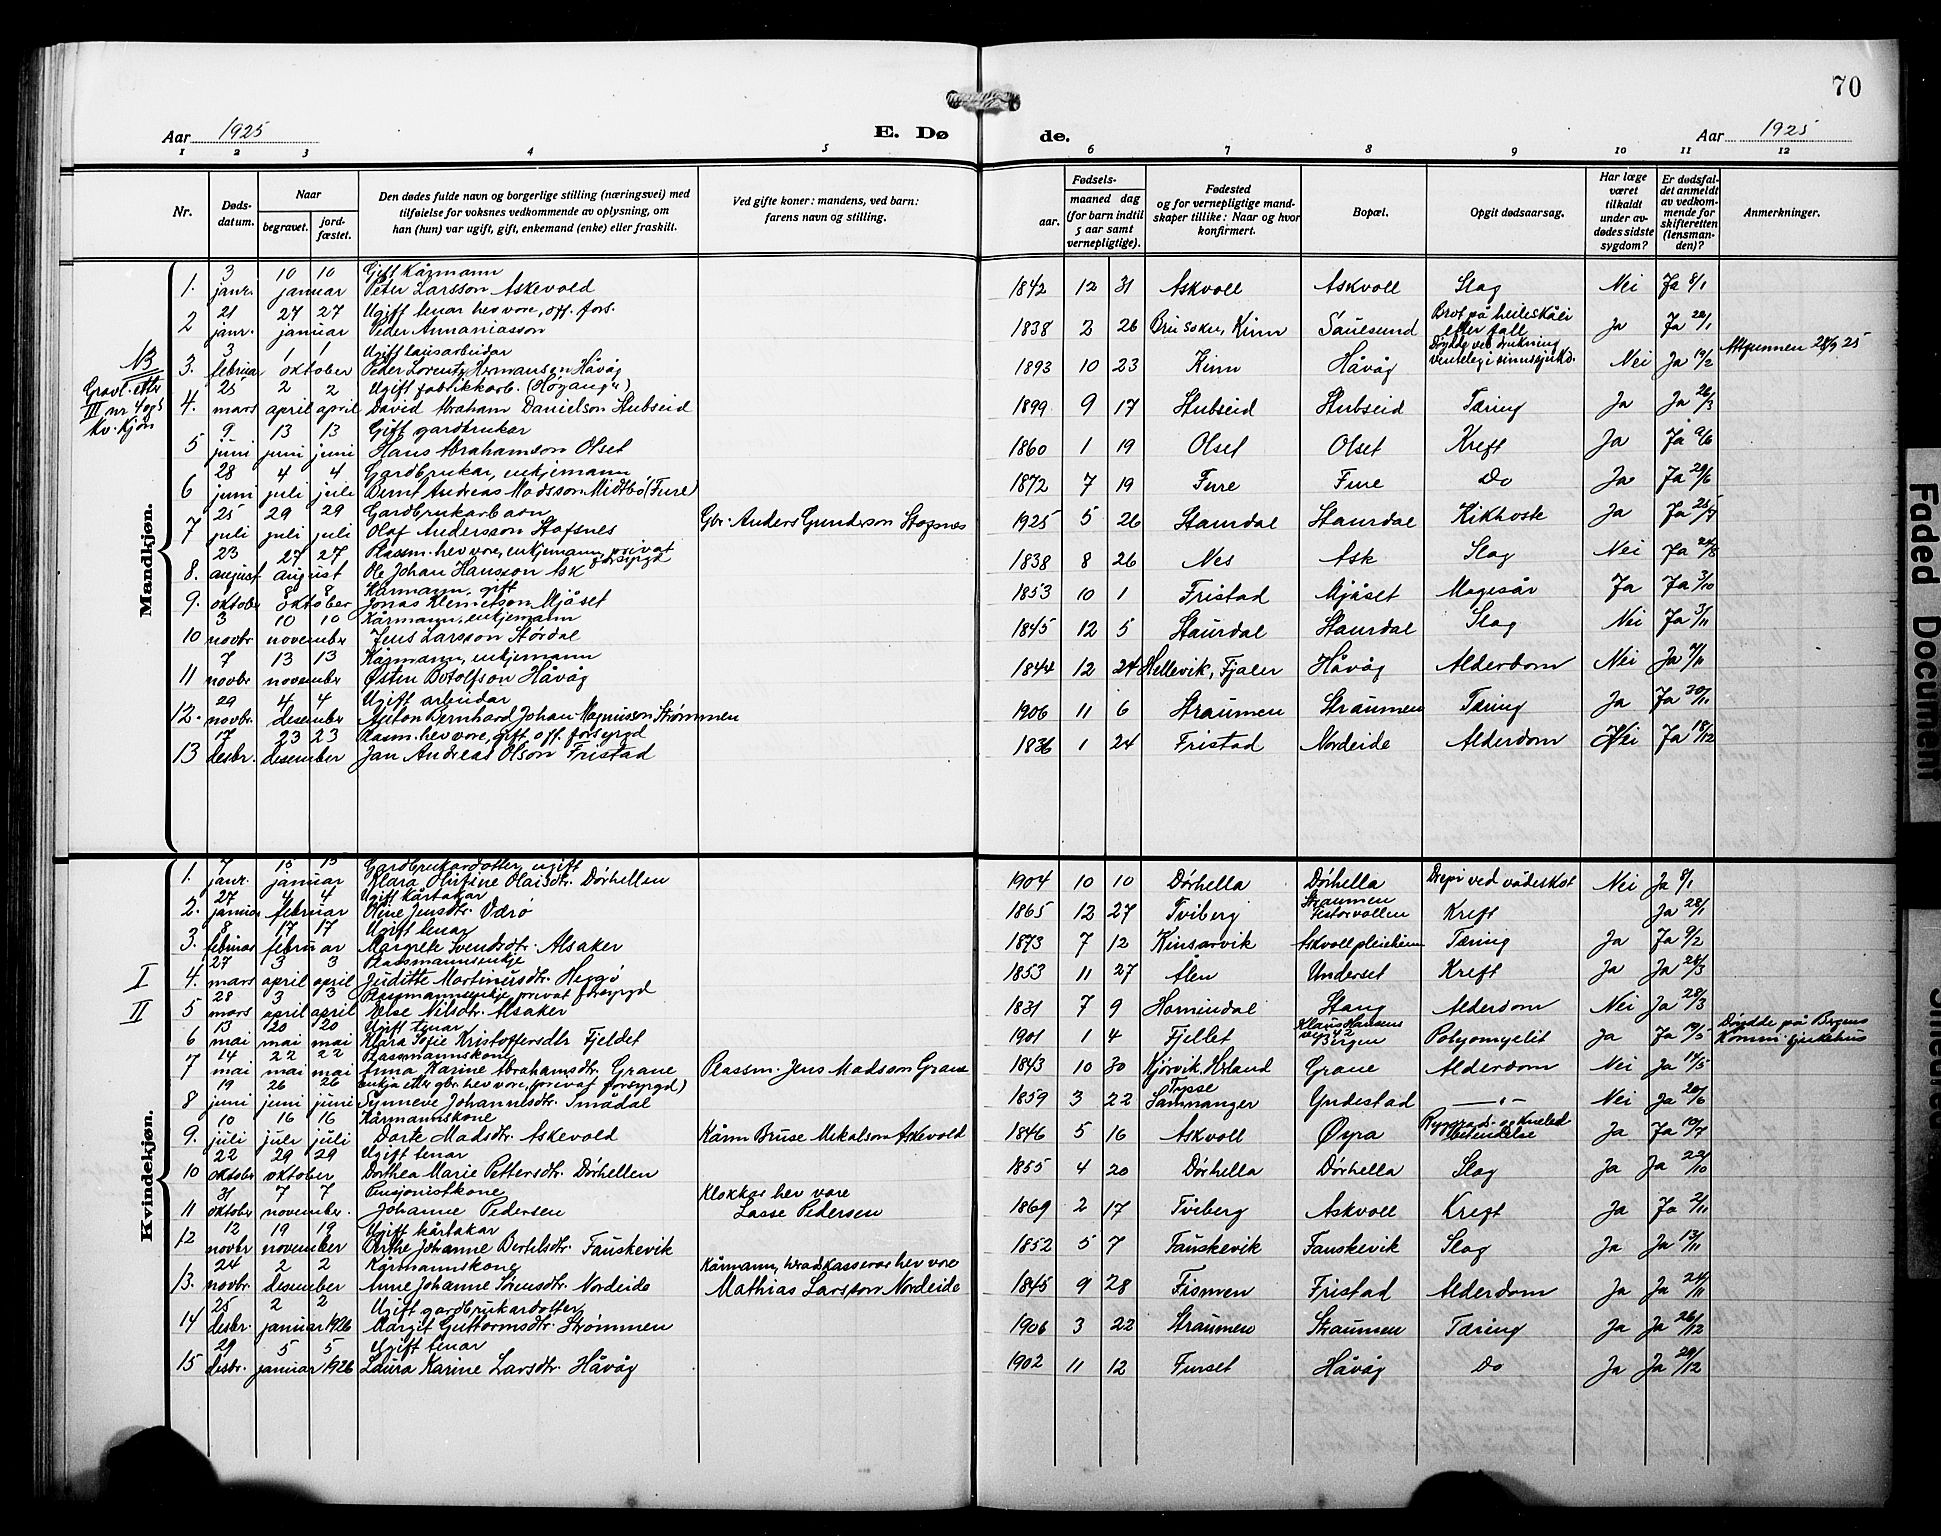 70
Aar 1925
E. Dø
de.
Aar 1925
1 2 3 4 5 6 7 8 9 10 11 12
Nr.
Døds-
datum.
Naar
begravet.
jord-
fæstet.
Den dødes fulde navn og borgerlige stilling (næringsvei) med
tilføielse for voksnes vedkommende av oplysning, om
han (hun) var ugift, gift, enkemand (enke) eller fraskilt.
Ved gifte koner: mandens, ved barn:
farens navn og stilling.
Fødsels-
aar.
maaned dag
(for barn indtil
5 aar samt
vernepligtige).
Fødested
og for vernepligtige mand-
skaper tillike: Naar og hvor
konfirmert.
Bopæl.
Opgit dødsaarsag.
Har læge
været
tilkaldt
under av-
dødes sidste
sygdom?
Er dødsfal-
det anmeldt
av vedkom-
mende for
skifteretten
(lensman-
den)?
Anmerkninger.
Mandkjøn.
NB
Gravl. etter
III nr 4 og 5
kv. kjøn
3 10 10 Gift Kårmann
1. janr. januar Peter Larsson Askevold 1842 12 31 Askvoll Askvoll Slag Nei Ja 8/1
21 27 27 Ugift tenar hev vore, off. fors.
2 janr. januar Peder Annaniasson 1838 2 26 Kinn Sauesund Brot på heileskåli etter fall Ja Ja 22/1
3 1 1 Ugift lausarbeidar
3. februar oktober Peder Lorentz Hermansen Håvåg 1893 10 23 Kinn Håvåg Døydde ved drukning venteleg i sinnssjukd. Nei Ja 19/2 Attfunnen 28/9 25
25 2 2 Ugift fabrikkarb. (Høyang")
4. mars april april David Abraham Danielson Stubseid 1899 9 17 Stubseid Stubseid Tæring Ja Ja 26/3
9 13 13 Gift gardbrukar
5 juni juni juni Hans Abrahamson Olset 1860 1 19 Olset Olset Kreft Ja Ja 9/6
28 4 4 Gardbrukar, enkjemann
6 juni juli juli Bernt Andreas Madsson Midtbø (Fure) 1872 7 19 Fure Fure Do Ja Ja 29/6
25 29 29 Gardbrukarbarn
7 juli juli juli Olaf Andersson Stafsnes Gbr. Anders Gunderson Stagsnes 1925 5 26 Staurdal Staurdal Kikhoste Ja Ja 25/7
23 27 27 Plassm. hev vore, enkjemann, privat forsyrgd
8. august august Ole Johan Hansson Ask 1838 8 26 Nes Ask Slag Nei Ja 24/8
8 8 Kårmann, gift
9. oktober oktober Jonas Klemetson Mjåset 1853 10 1 Fristad Mjåset Magesår Ja Ja 3/10
3 10 10 Kårmann, enkjemann
10 novbr november Jens Larsson Stórdal 1845 12 5 Staurdal Staurdal Slag Nei Ja 3/11
7 13 13 Kårmann, enkjemann
11 novbr november Østen Botolfson Håvåg 1844 12 24 Hellevik, Fjaler Håvåg Alderdom Nei Ja 9/11
29 4 4 Ugift arbeidar
12. novbr. desember Anton Bernhard Johan Magnusson Strømmen 1906 11 6 Straumen Straumen Tæring Ja Ja 30/11
17 23 23 Plassm. hev vore, gift, off. forsyrgd
13 desbr. desember Jan Andreas Olson Fristad 1836 1 24 Fristad Nordeide Alderdom Nei Ja 18/12
Kvindekjøn.
7 15 15 Gardbrukardotter, ugift
1. janr. januar Klara Olufine Olaisdtr. Dórhellen 1904 10 10 Dórhella Dórhella Drepi ved vådeskot Nei Ja 8/1
27 4 4 Ugift kårtakar
2. januar februar Oline Jensdtr. Værø 1865 12 27 Tviberg Straumen Kreft Ja 28/1
8 17 17 Ugift tenar
3. februar februar Margrete Svendsdtr. Alsaker 1873 7 12 Kinsarvik Askvoll pleieheim Tæring Ja Ja 9/2
27 3 3 Plassmannsenkje
I 4. mars april april Juditte Martinusdtr. Heggø 1853 11 27 Ålen Underset Kreft Ja Ja 28/3
28 3 3 Plassmannsenkje, privat forsyrgd
II 5 mars april april Else Nilsdtr. Alsaker 1831 7 9 Homindal Stang Alderdom Nei Ja 28/3
13 20 20 Ugift tenar
6 mai mai mai Klara Sofie Kristoffersdtr Fjeldet 1901 1 4 Fjellet Klaus Hansens veg 42 Bergen Polyomyelit Ja Ja 19/5 Døydde på Bergens Komm. sjukehus
14 22 22 Plassmannskone
7 mai mai mai Anna Karine Abrahamsdtr. Grane Plassm. Jens Madsson Grane 1843 10 30 Kjórvik, Hyland Grane Alderdom Nei Ja 14/5
19 26 26 enkja etter gbr. hev vore, (privat forsyrgd)
8 juni juni juni Synneve Johannesdtr. Smådal 1859 3 22 Tysse Samnanger Yndestad — " — Nei Ja 20/6
10 16 16 Kårmannskone
9. juli juli juli Dorte Madsdtr. Askevold Kårm Bruse Mikalson Askevold 1846 5 16 Askvoll Øyra Ryggrads- og kneled betendelse Ja Ja 10/7
22 29 29 Ugift tenar
10 oktobr oktober Dorthea Marie Pettersdtr. Dórhellen 1855 4 20 Dórhella Dórhella Slag Ja Ja 22/10
31 7 7 Pensjonistkone
11 oktober november. Johanne Pedersen Klokkar hev vore Lasse Pedersen 1869 2 17 Tviberg Askvoll Kreft Ja Ja 2/11
12 19 19 Ugift kårtakar
12 novbr november Berthe Johanne Bertelsdtr. Fauskevik 1852 5 7 Fauskevik Fauskevik Slag Ja Ja 13/11
24 2 2 Kårmannskone
13. novbr. desember Anne Johanne Sórensdtr. Nordeide Kårmann, heradskasserar hev vore Mathias Larsson Nordeide 1845 9 28 Fismen Fristad Alderdom Ja Ja 24/11
25 2 2 Ugift gardbrukardotter
14 desbr. januar 1926 Margit Guttormsdtr. Strømmen 1906 3 22 Straumen Straumen Tæring Ja Ja 26/12
29 5 5 Ugift tenar
15 desbr. januar 1926 Laura Karine Larsdtr. Håvåg 1902 11 12 Furset Håvåg Do Ja Ja 29/12
Faded Document